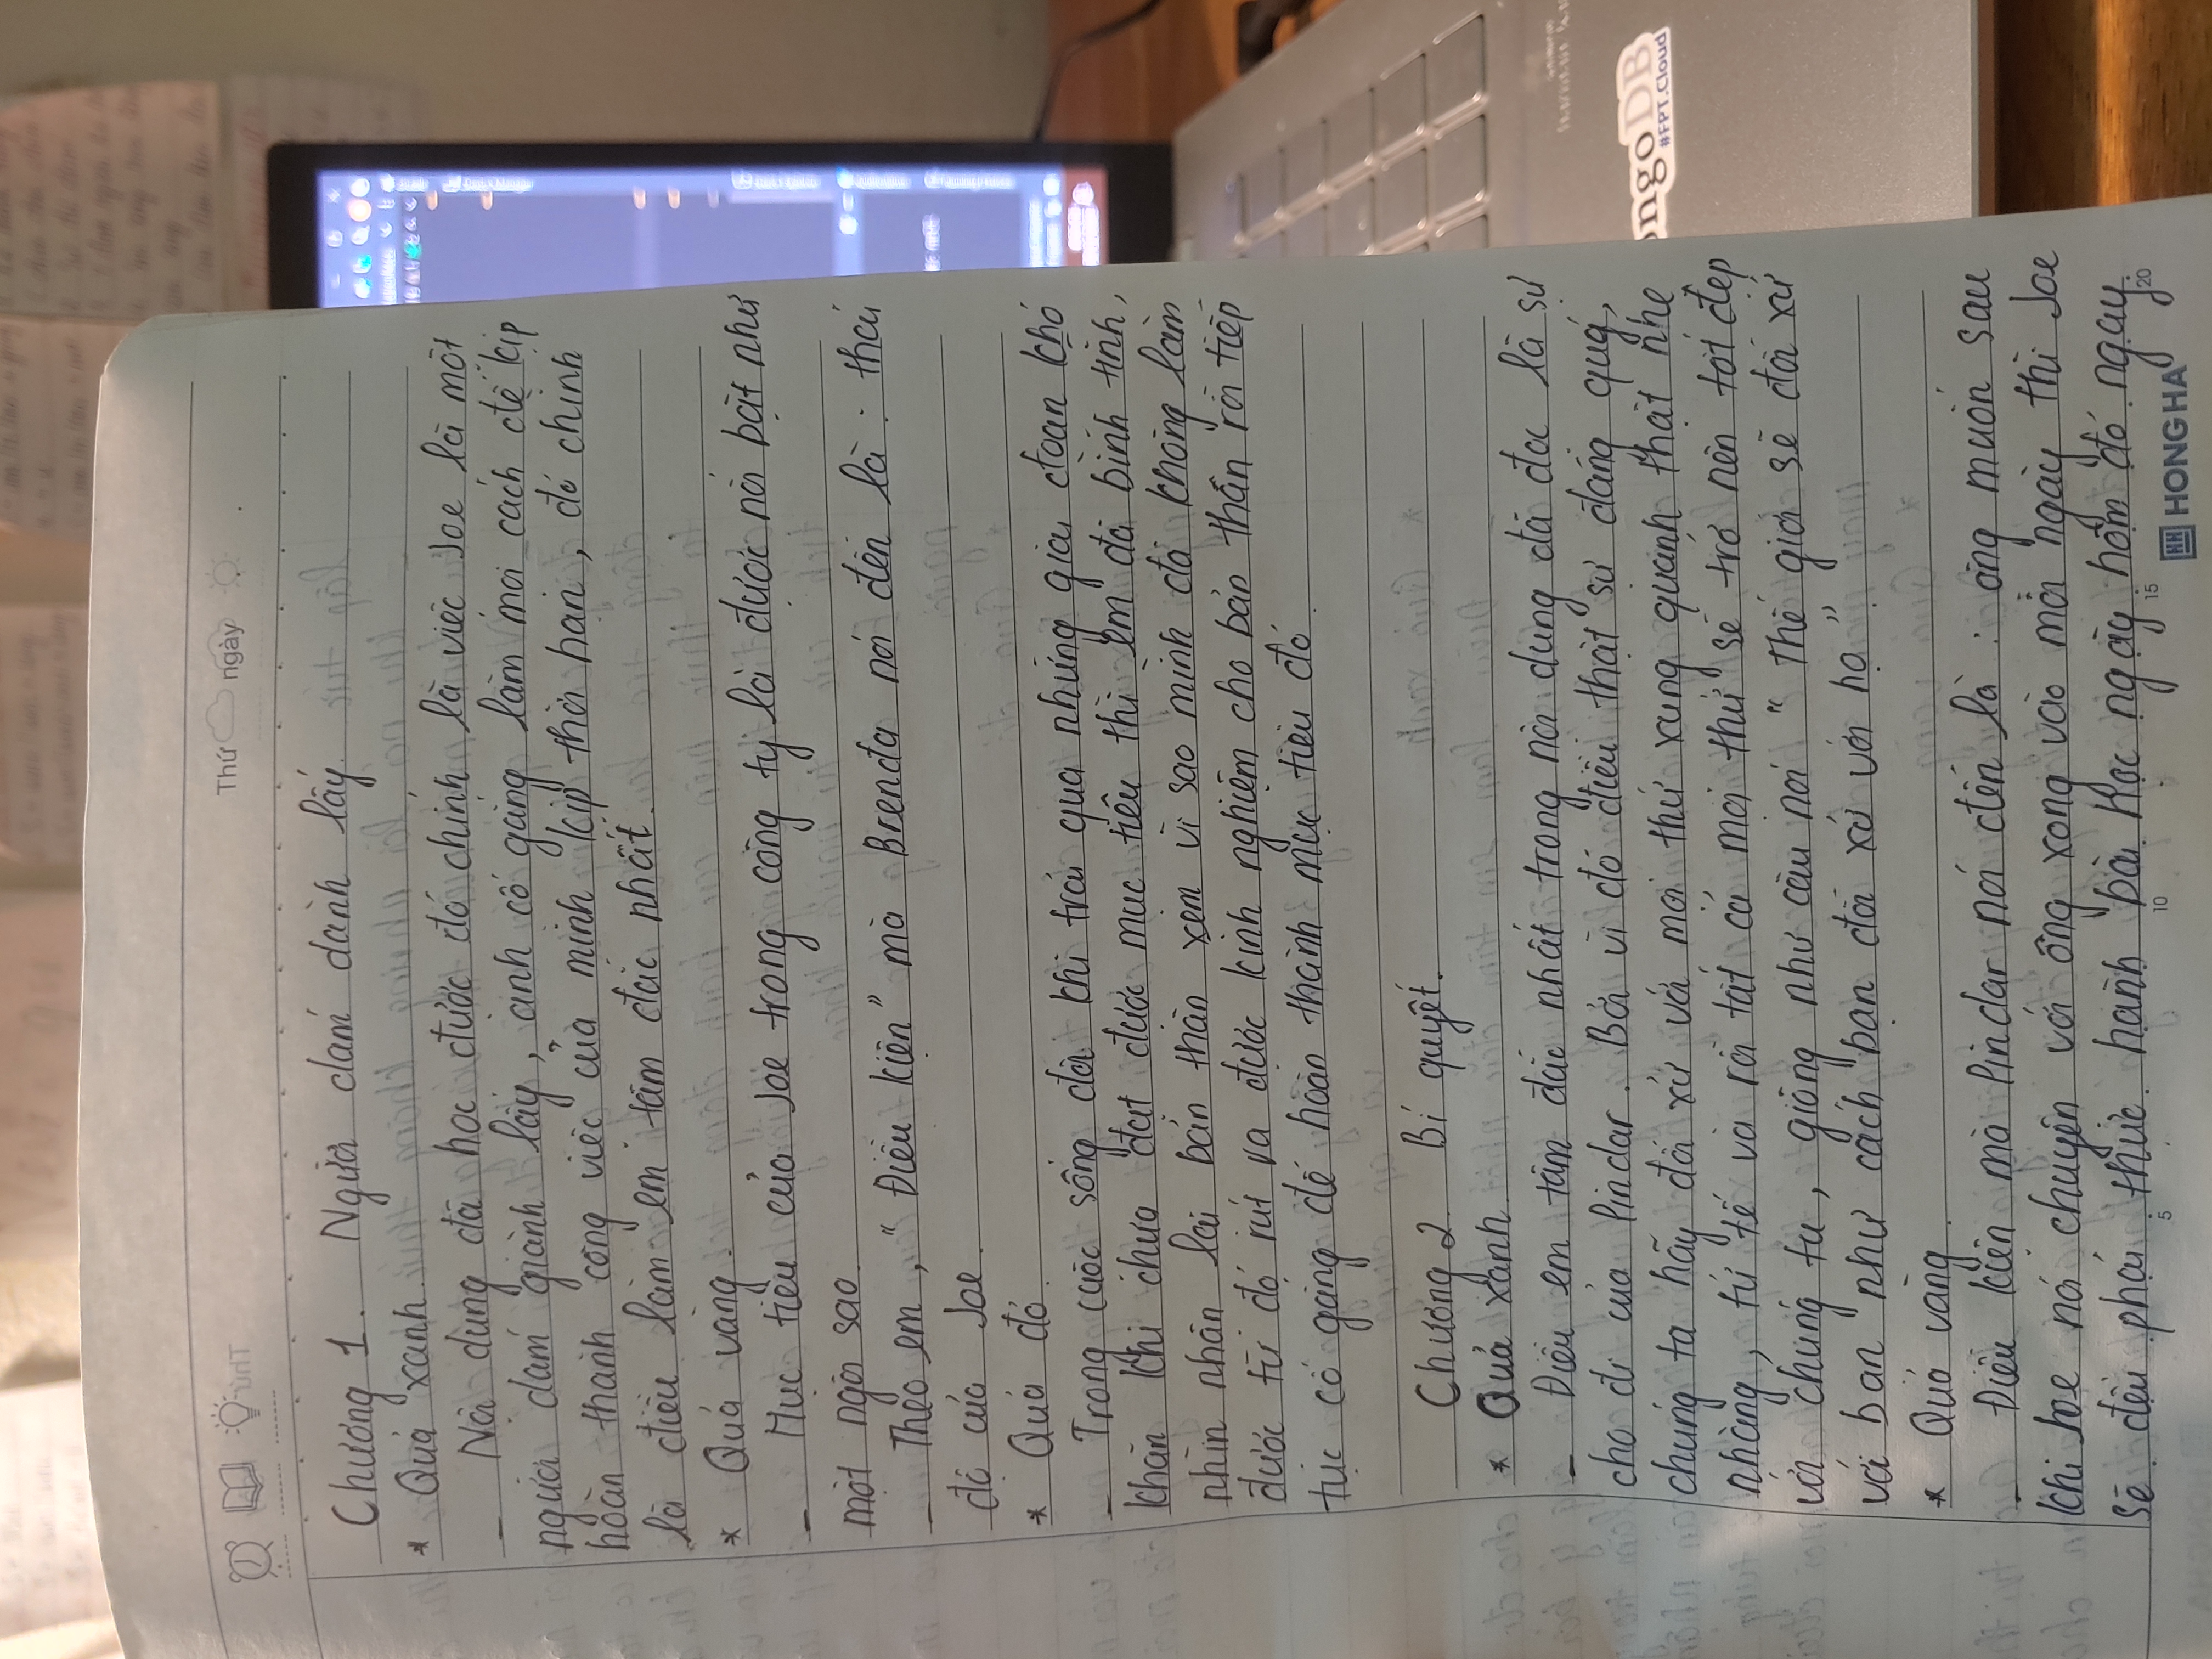 Thứ ngày
Chương 1. Người dám dành lấy.
* Quả xanh.
- Nội dung đã học được đó chính là việc Joe là một
người dám giành lấy, anh cố gắng làm mọi cách để kịp
hoàn thành công việc của mình kịp thời hạn, đó chính
là điều làm em tâm đắc nhất.
* Quả vàng.
- Mục tiêu của Joe trong công ty là được nổi bật như
một ngôi sao.
- Theo em, "Điều kiện" mà Brenda nói đến là : thái
độ của Joe.
* Quả đỏ.
- Trong cuộc sống đôi khi trải qua những giai đoạn khó
khăn khi chưa đạt được mục tiêu thì em đã bình tĩnh,
nhìn nhận lại bản thân xem vì sao mình đã không làm
được từ đó rút ra được kinh nghiệm cho bản thân rồi tiếp
tục cố gắng để hoàn thành mục tiêu đó.
Chương 2. Bí quyết.
* Quả xanh.
- Điều em tâm đắc nhất trong nội dung đã đọc là sự
cho đi của Pindar. Bởi vì đó điều thật sự đáng quý,
chúng ta hãy đối xử với mọi thứ xung quanh thật nhẹ
nhàng, tử tế và rồi tất cả mọi thứ sẽ trở nên tốt đẹp
với chúng ta, giống như câu nói "Thế giới sẽ đối xử
với bạn như cách bạn đối xử với họ".
* Quả vàng.
- Điều kiện mà Pindar nói đến là : ông muốn sau
khi Joe nói chuyện với ông xong vào mỗi ngày thì Joe
sẽ đều phải thực hành bài học ngày hôm đó ngay.
5 10 15 20
HONG HA
ongoDB
#FPT.Cloud